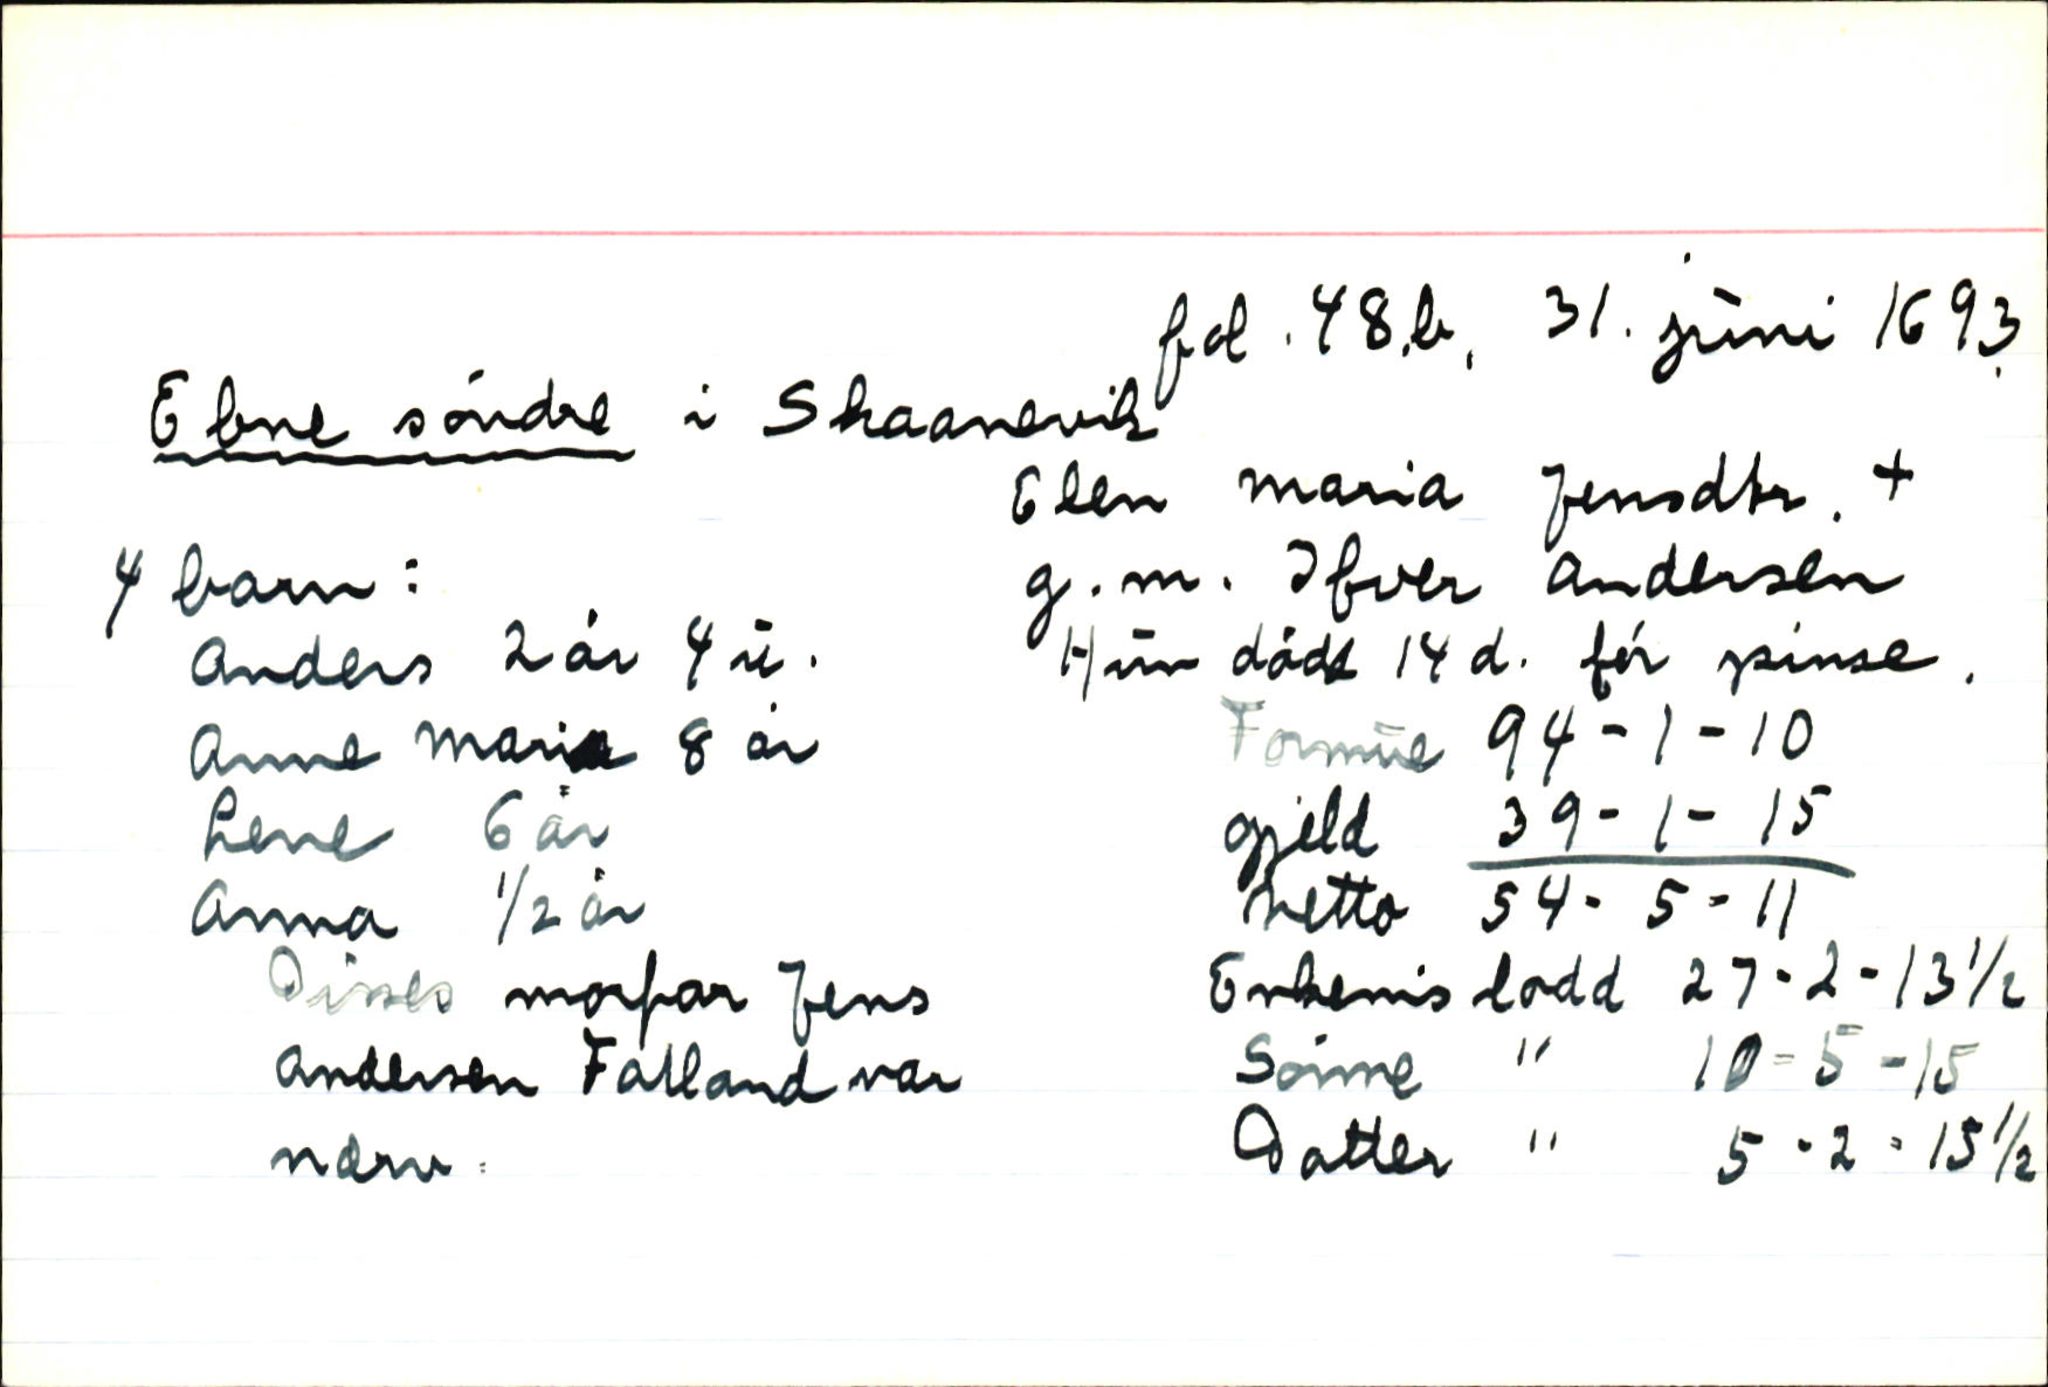 fol. 48.b, 31. juni 1693.
Ebne söndre i Skaanevik
Elen Maria Jensdtr. +
4 barn: g. m. Ifver Andersen
Anders 2 år 4 u. Hun döde 14 d. för pinse.
Anne Marie 8 år Formue 94-1-10
Lene 6 år gjeld 39-1-15
Anna 1/2 år Netto 54-5-11
Disses morfar Jens Enkem's lodd 27-2-13 1/2
Andersen Fatland var Sönne " 10-5-15
nærv. Datter " 5-2-15 1/2